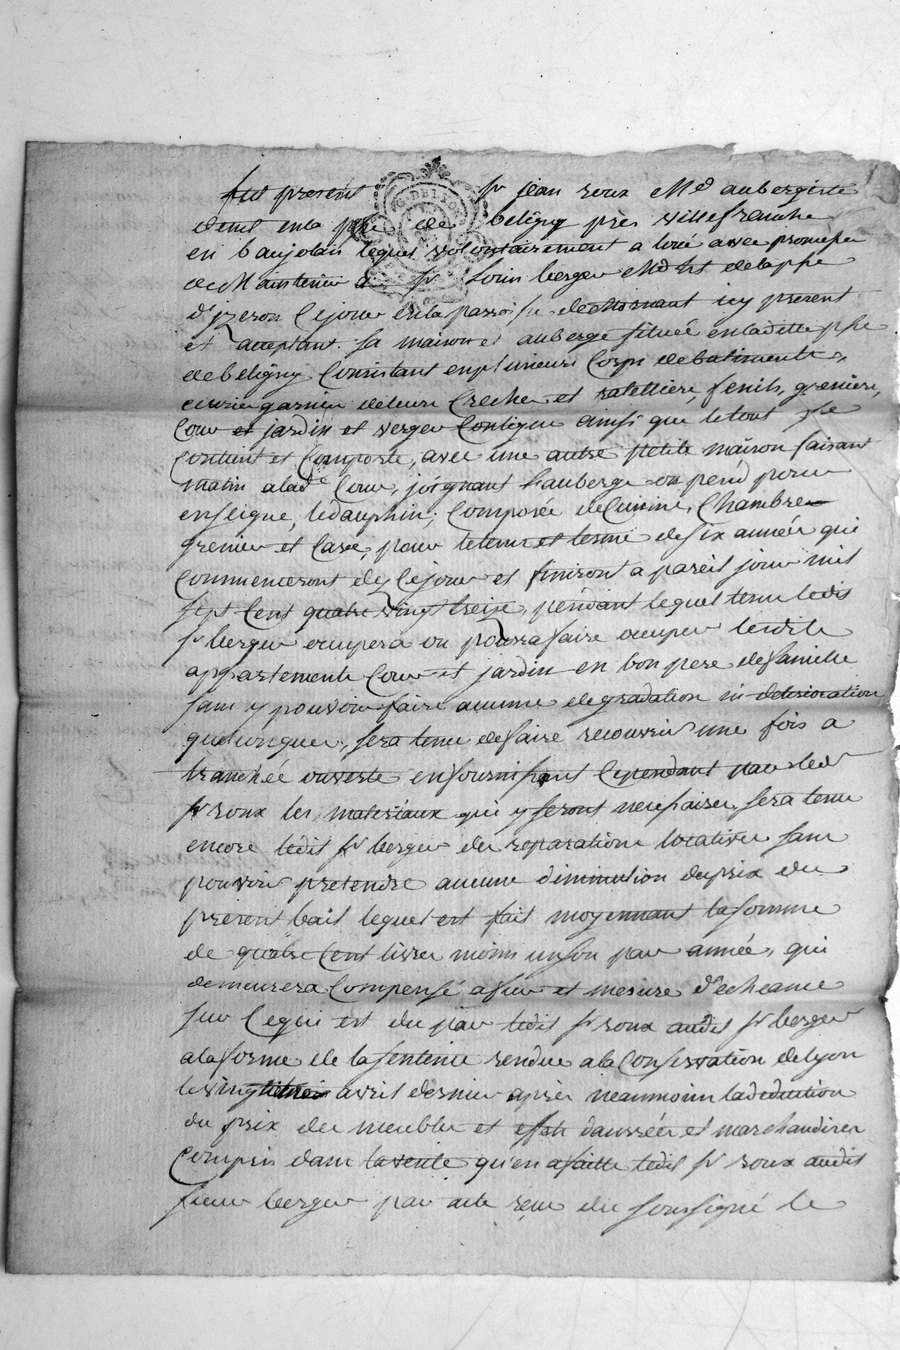 fut present Sr jean roux Md aubergiste
demt en la psse de beligny près villefranche
en baujolais lequel volontairement a loué avec promesse
de Maintenir a Sr Louis berger Md ht de la psse
d'yzeron Cejour en la parroisse de chornant icy present
et acceptant. Sa maison et auberge située en ladette psse
de beligny Consistant en plusieurs Corps de batiments,
ecurie garnie de leurs Creches et ratellière, fenils, greniers,
Cour et jardin et verger Contigue ainsi que le tout se
Contient et Comporte, avec une autre petite maison faisant
matin a lade Cour, joignant l'auberge ou pend pour
enseigne, le dauphin; Composée de Cuisine, Chambre
grenier et Cave, pour le tems et terme de six année qui
Commenceront dez Cejour et finiront a pareil jour mil
sept Cent quatre vingt treize, pendant lequel tems ledit
Sr berger occupera ou pourra faire occuper lesdits
appartements Cour et jardin en bon pere de famille
sans y pouvoir faire aucune degradation ni deterioration
quelconques, sera tenu de faire recouvrir une fois a
tranchée ouverte en fournissant Cependant par led
Sr roux les materiaux qui y seront necessaires, sera tenu
encore ledit Sr berger des reparations locatives sans
pouvoir pretendre aucune diminution du prix du
present bail lequel est fait moyennant la somme
de quatre Cent livres moins un sou par année, qui
demeurera Compensé a fur et mesure d'echeance
sur Cequi est du par ledit Sr roux audit Sr berger
a la forme de la sentence rendue a la Conservation de lyon
le vingt avril dernier après neanmoins la deduction
du prix des meubles et effets danrrées et marchandises
Compris dans la vente qu'en a faitte ledit Sr roux audit
sieur berger par acte reçu du soussigné le